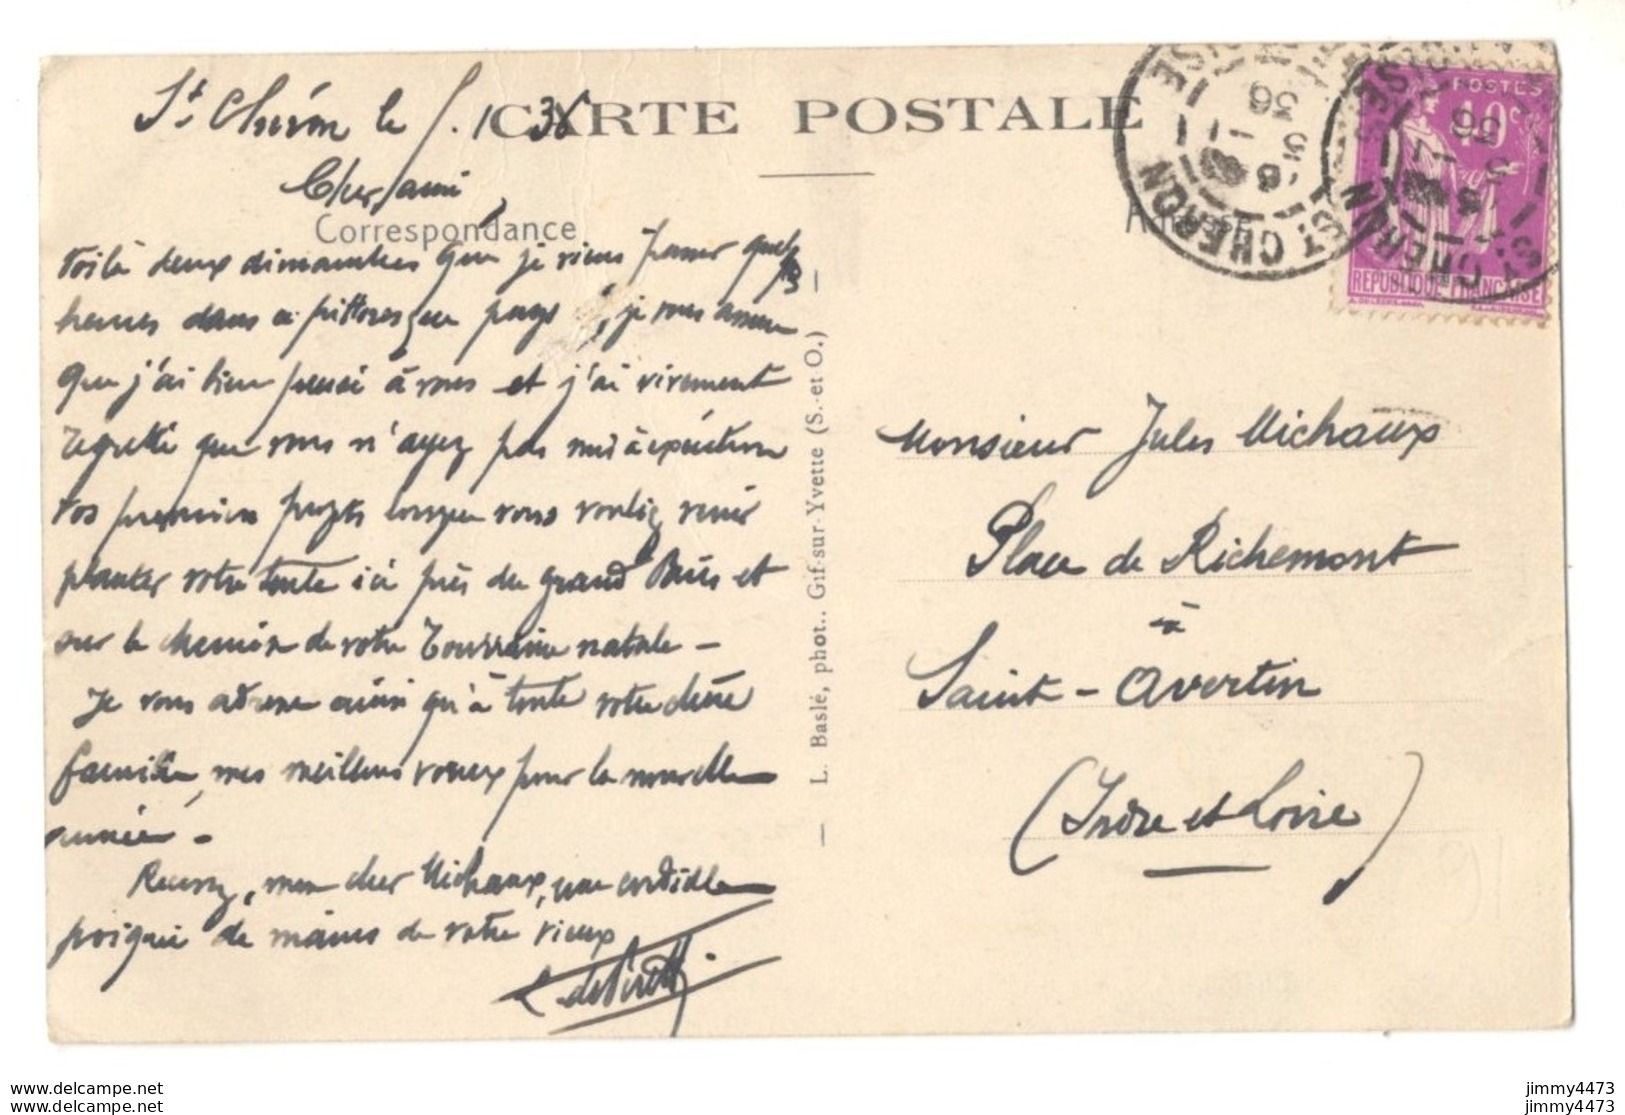 CARTE POSTALE
St Chéron le 5. 1 36
Cher ami,
Correspondance
Voilà deux dimanches que je viens passer quelques
heures dans ce pittoresque pays et, je vous assure
que j'ai bien pensé à vous et j'ai vivement
regretté que vous n'ayez pas mis à exécution
vos premiers projets lorsque vous vouliez venir
planter votre tente ici près du grand Paris et
sur le chemin de votre Tourraine natale –
Je vous adresse ainsi qu'à toute votre chère
famille, mes meilleurs voeux pour la nouvelle
année –
Recevez, mon cher Michaux, une cordiale
poignée de mains de votre vieux
L. Baslé, phot.. Gif-sur-Yvette (S. et O.)
ST CHERON
ST CHERON
POSTES
40c
REPUBLIQUE FRANÇAISE
Monsieur Jules Michaux
Place de Richemont
à
Saint-Avertin
(Indre et Loire)
www.delcampe.net
www.delcampe.net
jimmy4473
jimmy4473